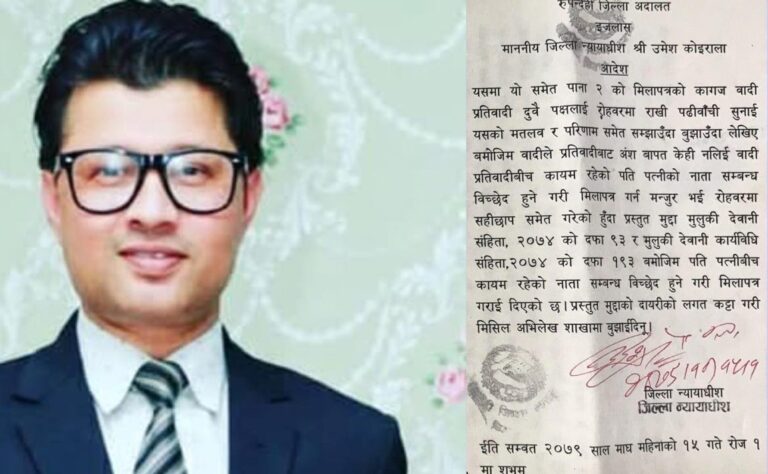 रुपन्देही जिल्ला अदालत
इजलास
माननीय जिल्ला न्यायाधीश श्री उमेश कोइराला
आदेश
यसमा यो समेत पाना २ को मिलापत्रको कागज वादी
प्रतिवादी दुवै पक्षलाई रोहवरमा राखी पढीवाँची सुनाई
यसको मतलव र परिणाम समेत सम्झाउँदा बुझाउँदा लेखिए
बमोजिम वादीले प्रतिवादीबाट अंश बापत केही नलिई वादी
प्रतिवादीबीच कायम रहेको पति पत्नीको नाता सम्बन्ध
बिच्छेद हुने गरी मिलापत्र गर्न मन्जुर भई रोहवरमा
सहीछाप समेत गरेको हुँदा प्रस्तुत मुद्दा मुलुकी देवानी
संहिता, २०७४ को दफा ९३ र मुलुकी देवानी कार्यविधि
संहिता,२०७४ को दफा १९३ बमोजिम पति पत्नीबीच
कायम रहेको नाता सम्बन्ध बिच्छेद हुने गरी मिलापत्र
गराई दिएको छ। प्रस्तुत मुद्दाको दायरीको लगत कट्टा गरी
मिसिल अभिलेख शाखामा बुझाईदिनू।
जिल्ला न्यायाधीश
जिल्ला न्यायाधीश
ईति सम्वत २०७९ साल माघ महिनाको १५ गते रोज १
मा शुभम्